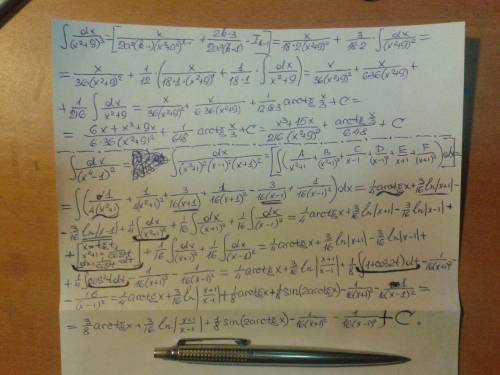 ∫ dx/(x²+9)³ = [x/(2a²(k-1)(x²+a²)^(k-1)) + (2k-3)/(2a²(k-1)) · I_(k-1)] = x/(18·2(x²+9)²) + 3/(18·2) · ∫ dx/(x²+9)² =
= x/(36(x²+9)²) + 1/12 · (x/(18·1·(x²+9)) + 1/(18·1) · ∫ dx/(x²+9)) = x/(36(x²+9)²) + x/(6·36(x²+9)) +
+ 1/216 ∫ dx/(x²+9) = x/(36(x²+9)²) + x/(6·36(x²+9)) + 1/(12·18·3) arctg x/3 + C =
= (6x+x³+9x)/(6·36(x²+9)²) + 1/648 arctg x/3 + C = (x³+15x)/(216(x²+9)²) + arctg x/3 / 648 + C
∫ dx/(x⁴-1)² = ∫ dx/((x²+1)²(x-1)²(x+1)²) = [∫(A/(x²+1) + B/(x²+1)² + C/(x-1) + D/(x-1)² + E/(x+1) + F/(x+1)²)dx] =
= ∫(1/(4(x²+1)) + 1/(4(x²+1)²) + 3/(16(x+1)) + 1/(16(x+1)²) - 3/(16(x-1)) + 1/(16(x-1)²))dx = 1/4 arctg x + 3/16 ln|x+1| -
- 3/16 ln|x-1| + 1/4 ∫ dx/(x²+1)² + 1/16 ∫ dx/(x+1)² + 1/16 ∫ dx/(x-1)² = 1/4 arctg x + 3/16 ln|x+1| - 3/16 ln|x-1| +
+ 1/16 ∫ dx/(x+1)² + 1/16 ∫ dx/(x-1)² = 1/4 arctg x + 3/16 ln|x+1| - 3/16 ln|x-1| +
+ 1/4 ∫ cos²t dt - 1/(16(x+1)) - 1/(16(x-1)) = 1/4 arctg x + 3/16 ln|(x+1)/(x-1)| + 1/8 ∫(1+cos2t)dt - 1/(16(x+1)) -
= 1/4 arctg x + 3/16 ln|(x+1)/(x-1)| + 1/8 arctg x + 1/8 sin(2arctg x) - 1/(16(x+1)) - 1/(16(x-1)) =
= 3/8 arctg x + 3/16 ln|(x+1)/(x-1)| + 1/8 sin(2arctg x) - 1/(16(x+1)) - 1/(16(x-1)) + C.